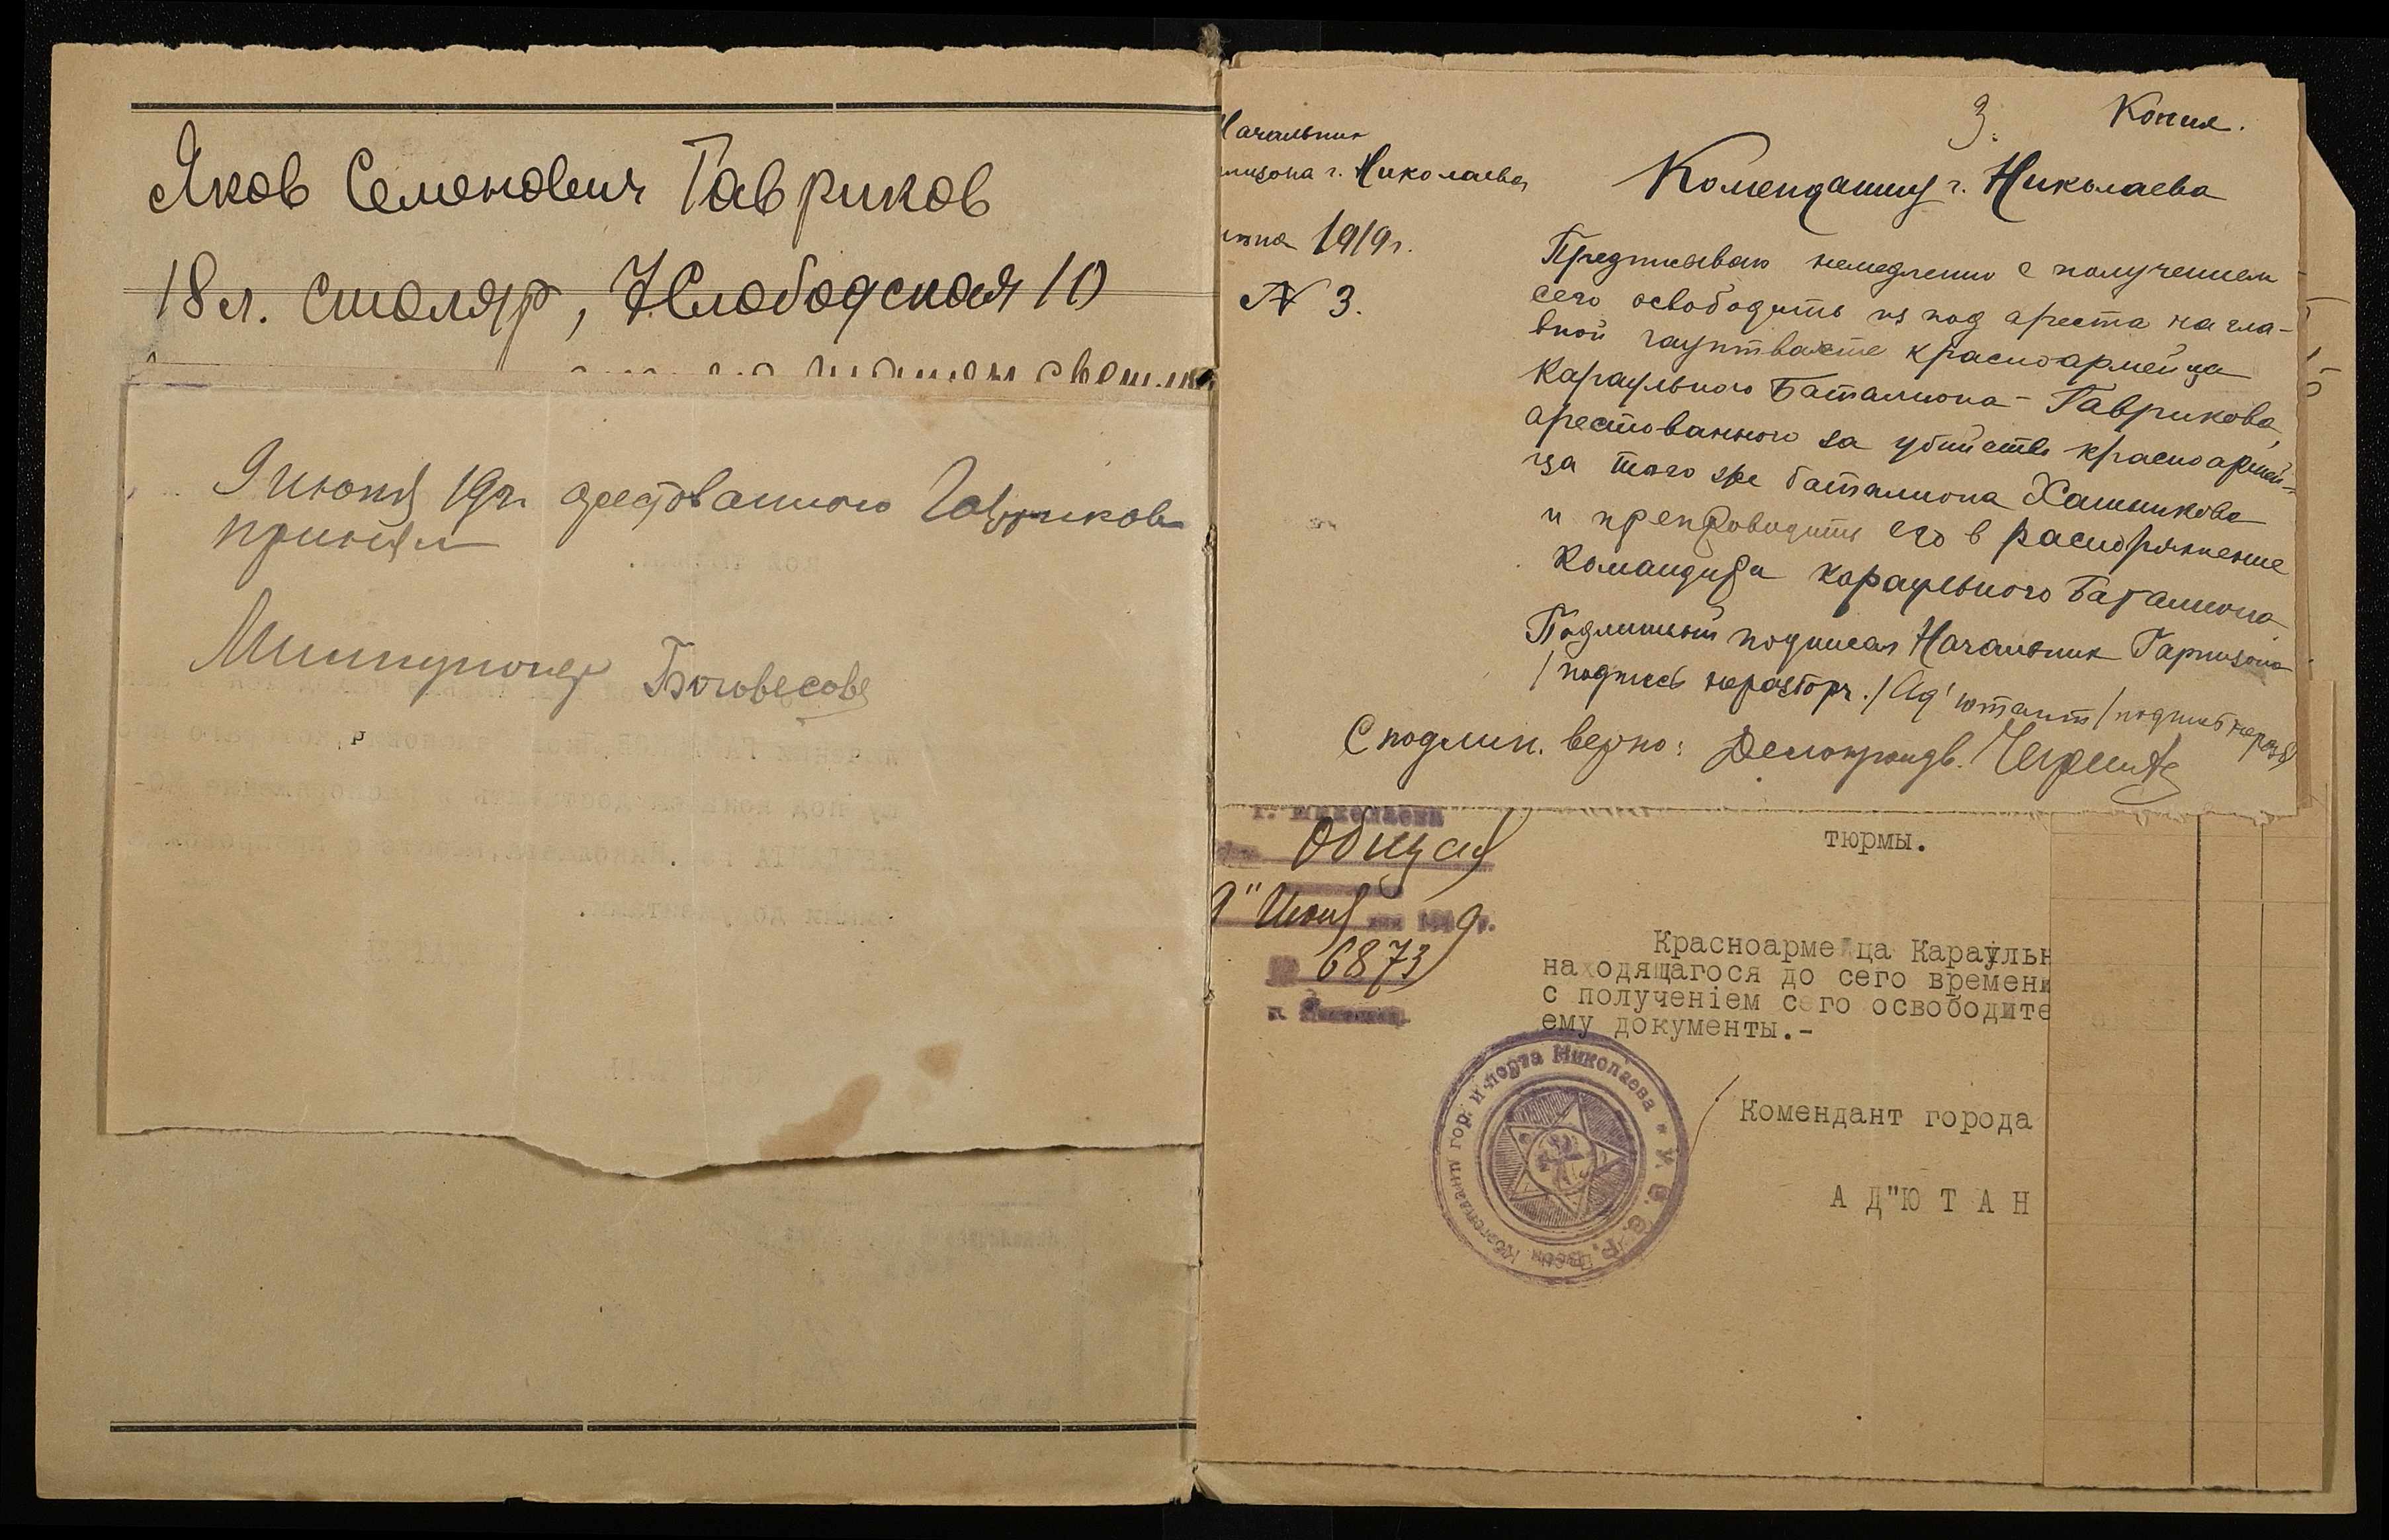 Яков Семенович Гавриков
18 л. столяр, Слободская 10
9 июня 19г. арестованного Гаврикова
принял
Боговесова
3.
Копия.
Начальник
низона г. Николаева
1919 г.
№ 3.
Коменданту г. Николаева
Предписываю немедленно с получением
сего освободить из под ареста на гла-
вной гауптвахте красноармейца
Караульного Баталиона - Гаврикова,
арестованного за убийство красноармей-
ца того же баталиона Хашникова
и препроводить его в распоряжение
Командира караульного Баталиона
Подлинный подписал Начальник Гарнизона
/подпись неразборч./ Ад'ютант /подпись неразб
С подлин. верно:
г. Николаева
Общая
9" Июня 1919 г.
№ 6873
тюрмы.
Красноармейца Караульн
находящагося до сего времени
с получением сего освободите
ему документы.-
Комендант города
А Д"Ю Т А Н
Комендант гор. и порта Николаева * У. С. С. Р.